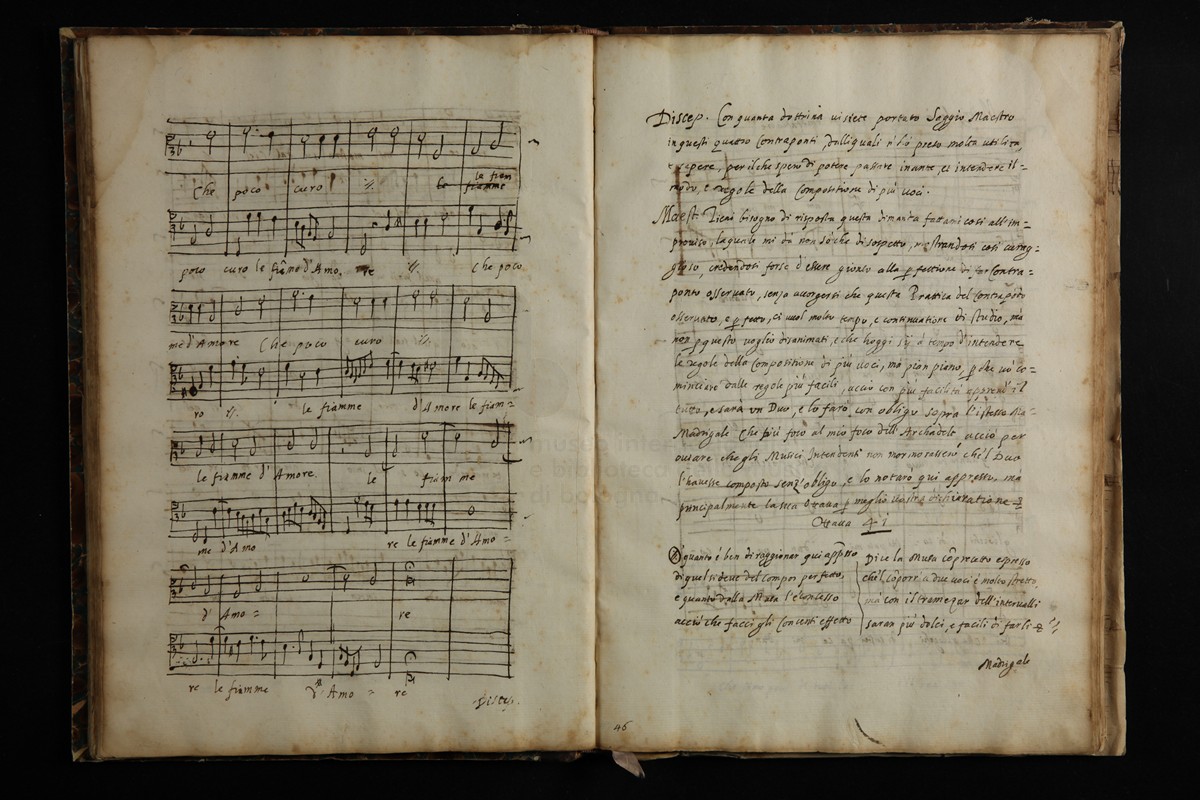 Che poco curo ij. la fiam
le fiamme
poco curo le fiāme d'Amo, re ij. Che poco
me d'Amore Che poco curo ij.
ro ij. le fiamme d'Amore le fiam=
le fiamme d'Amore. le fiam me
me d'Amo re le fiamme d'Amo=
d'Amo= re
re le fiamme d'Amo= re
Discep.
Discep. Con quanta dottrina vi siete portato Saggio Maestro
in questi quattro Contraponti dalli quali n'hò preso molta utilità,
e sapere, per il che spero di potere passare inante, et intendere il
modo, e regole della Compositione di più voci.
Maest. Tiene bisogno di risposta questa dimanta fattami così all'im=
proviso, la quale mi dà non sò che di sospetto, mostrandosi così
credendosi forse d'essere gionto alla p̱fettione di Contra=
ponto osservato, senza accorgersi che questa Prattica del Contrapōto
osservato, e p̱fetto, ci vuol molto tempo, e continuatione di studio, ma
non p̱ questo voglio disanimati, e che hoggi tempo d'intendere
le regole della Compositione di più voci, ma pian piano, p̱che vò co=
minciare dalle regole più facili, acciò con più facilità apprendi il
tutto, e sarà un Duo, e lo farò con obligo sopra l'istesso Ma=
Madrigale Che più foco al mio foco dell'Archadelt acciò per
ovviare che gli Musici Intendenti non mormorassero ch'il Duo
l'havesse composto senz'obligo, e lo notarò qui appresso, ma
principalmente la sua Ottava p̱ meglio vostra dichiaratione
Ottava 41
O quanto è ben di raggionar qui app̄sso
di quel si deve del compor perfetto,
e quanto dalla Musa l'è concesso
acciò che facci gli Concenti effetto
Dice la Musa cō precetto espresso
ch'il cōpore a due voci è molto stretto
ma con il tramezar dell'intervalli
saran più dolci, e facili di farli
Madrigale
46
museo inter
e biblioteca
di bologna